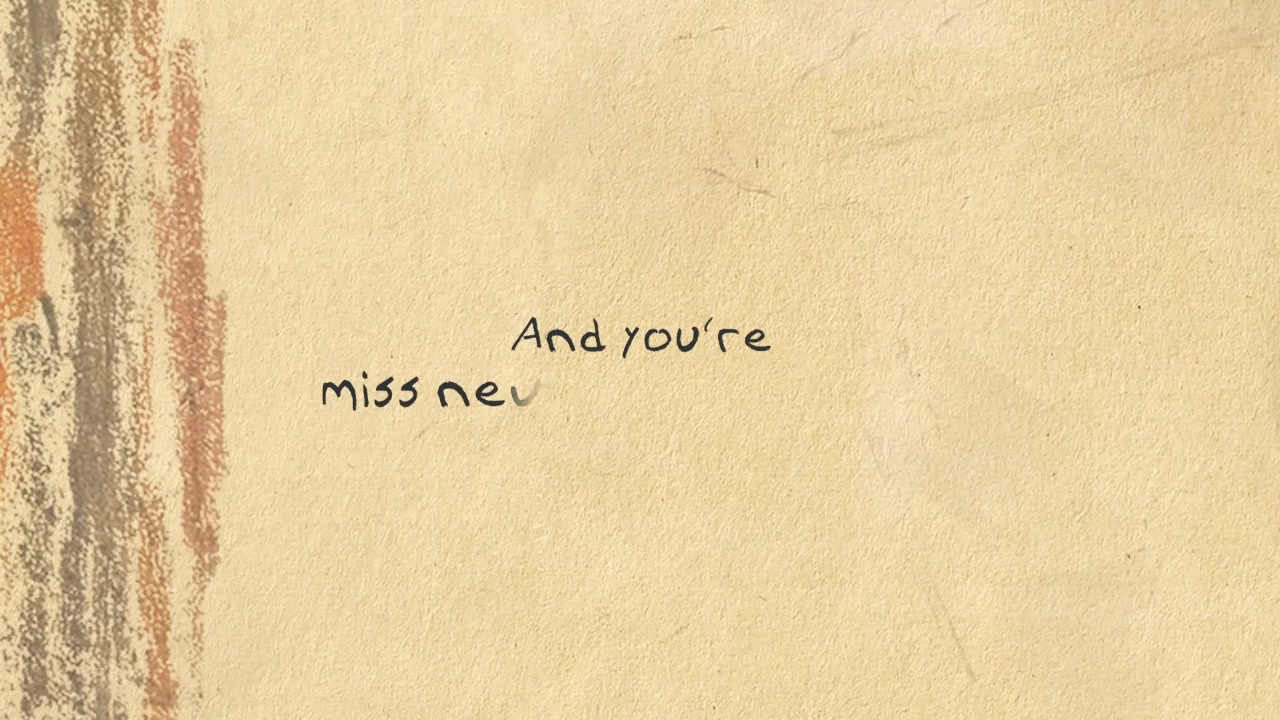 And you're
miss neu